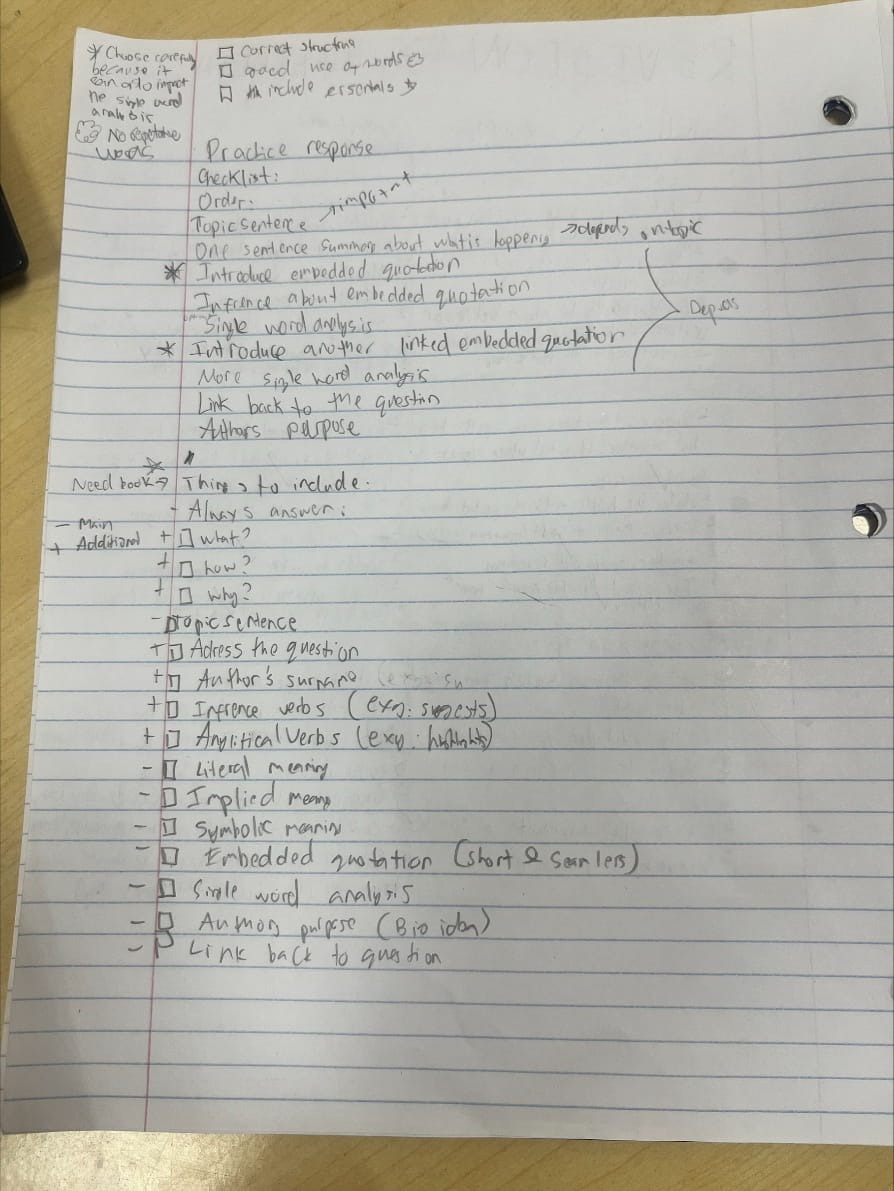 * Choose carefuly
because it
can also impact
the single word
analysis
No repetative
words
□ Correct structure
□ good use of words
□ include essentials
Practice response
Checklist:
Order:
Topic sentence → important
One sentence summary about what is happening → depends on topic
* Introduce embedded quotation
Infrence about embedded quotation
Single word anylysis
* Introduce another linked embedded quotation
More single word analysis
Link back to the question
Authors purpose
Depends
Need book → Things to include.
- Always answer:
- Main
+ Additional
+ □ what?
+ □ how?
+ □ why?
- □ Topic sentence
+ □ Adress the question
+ □ Author's surname
+ □ Infrence verbs (exy: sugests)
+ □ Anylitical Verbs (exy: highlights)
- □ Literal meaning
- □ Implied meaning
- □ Symbolic meaning
- □ Embedded quotation (short & seamless)
- □ Single word analysis
- □ Authors purpose
- □ Link back to question